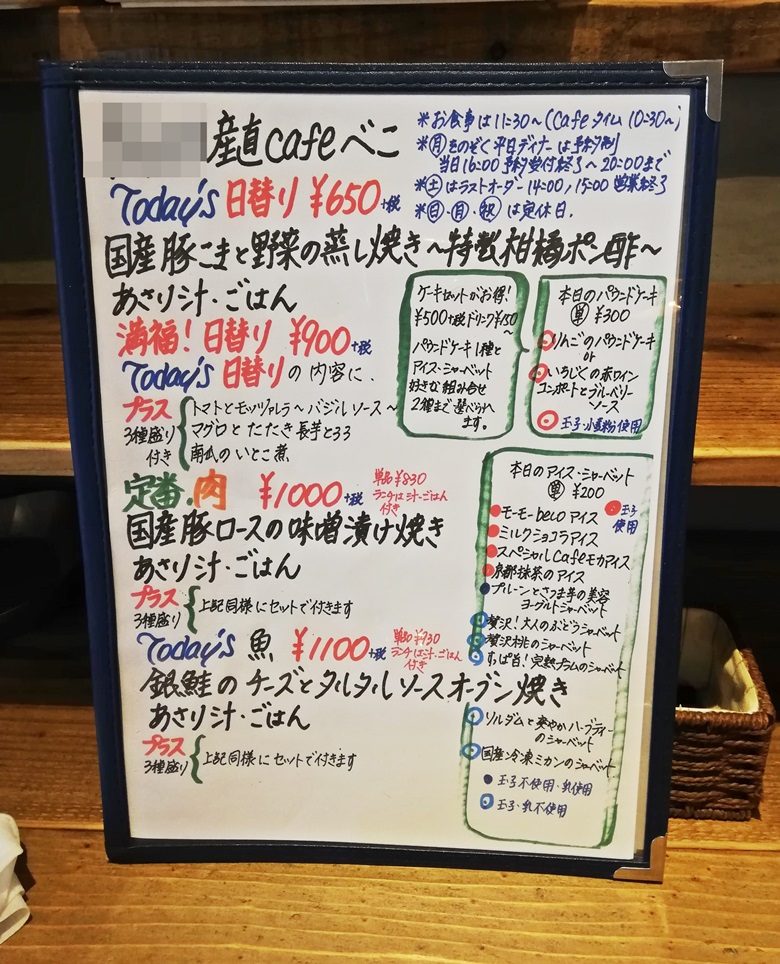 産直cafeべこ
※お食事は11:30～(Cafeタイム 10:30～)
※㊊をのぞく平日ディナーは予約制
当日16:00 予約受付終了～20:00まで
※㊏はラストオーダー14:00, 15:00 営業終了
※㊐・㊊・㊗は定休日.
Today's 日替り ¥650+税
国産豚こまと野菜の蒸し焼き～特製柑橘ポン酢～
あさり汁・ごはん
満福！日替り ¥900+税
Today's 日替りの内容に、
プラス
3種盛り
付き
トマトとモッツァレラ～バジルソース～
マグロとたたき長芋とろろ
南瓜のいとこ煮
定番.肉 ¥1000+税
単品¥830
ランチは汁・ごはん
付き
国産豚ロースの味噌漬け焼き
あさり汁・ごはん
プラス
3種盛り
上記同様にセットで付きます
Today's 魚 ¥1100+税
単品¥930
ランチは汁・ごはん
付き
銀鮭のチーズとタルタルソースオーブン焼き
あさり汁・ごはん
プラス
3種盛り
上記同様にセットで付きます
ケーキセットがお得！
¥500+税ドリンク¥150～
パウンドケーキ1種と
アイス・シャーベット
好きな組み合せ
2種まで選べられ
ます。
本日のパウンドケーキ
㊒ ¥300
りんごのパウンドケーキ
or
いちじくの赤ワイン
コンポートとブルーベリー
ソース
玉子・小麦粉使用
本日のアイス・シャーベット
¥200
モーモーbecoアイス
玉子
使用
ミルクショコラアイス
スペシャルCafeモカアイス
京都抹茶のアイス
プルーンとさつま芋の美容
ヨーグルトシャーベット
贅沢！大人のぶどうシャーベット
贅沢桃のシャーベット
すっぱ首！完熟プラムのシャーベット
ソルダムと爽やかハーブティー
のシャーベット
国産冷凍ミカンのシャーベット
玉子不使用・乳使用
玉子・乳不使用